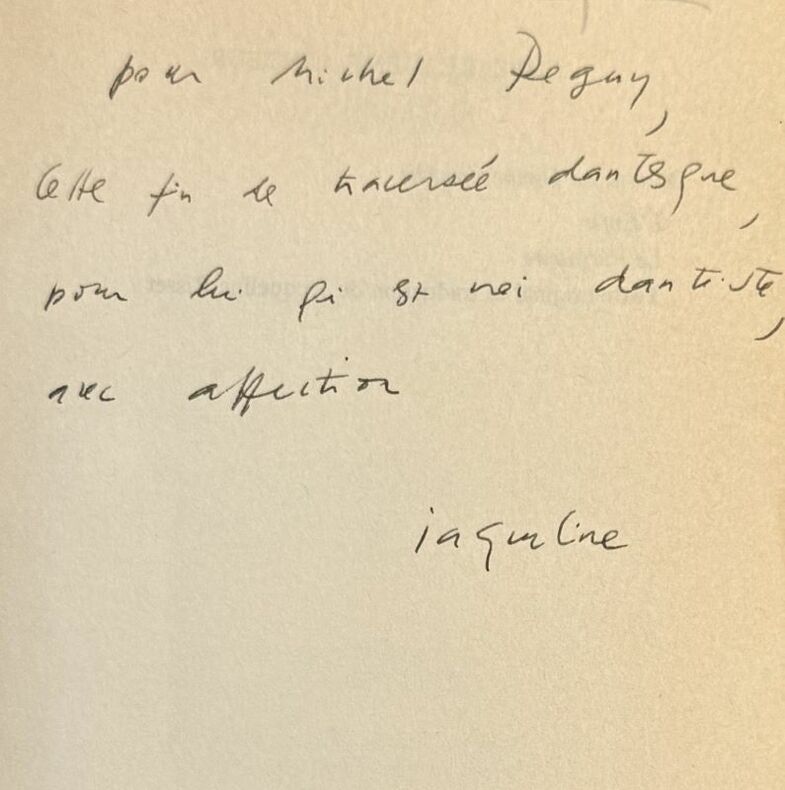 pour Michel Deguy,
Cette fin de traversée dantesque,
pour lui qui est vrai dantiste,
avec affection
jaqueline